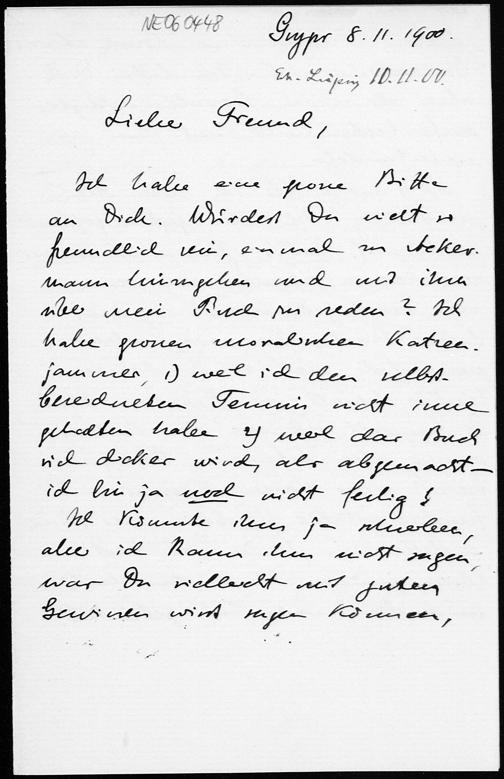 NE060448
Gryps 8. 11. 1900.
Eh. Leipzig 10.11.00.
Lieber Freund,
Ich habe eine grosse Bitte
an Dich. Würdest Du nicht so
freundlich sein, einmal zu Acker-
mann hinzugehen und mit ihm
über mein Buch zu reden? Ich
habe grossen moralischen Katzen-
jammer, 1) weil ich den selbst-
berechneten Termin nicht inne
gehalten habe 2) weil das Buch
viel dicker wird, als abgemacht —
ich bin ja noch nicht fertig!
Ich könnte ihm ja schreiben,
aber ich kann ihm nicht sagen,
was Du vielleicht mit gutem
Gewissen wirst sagen können,